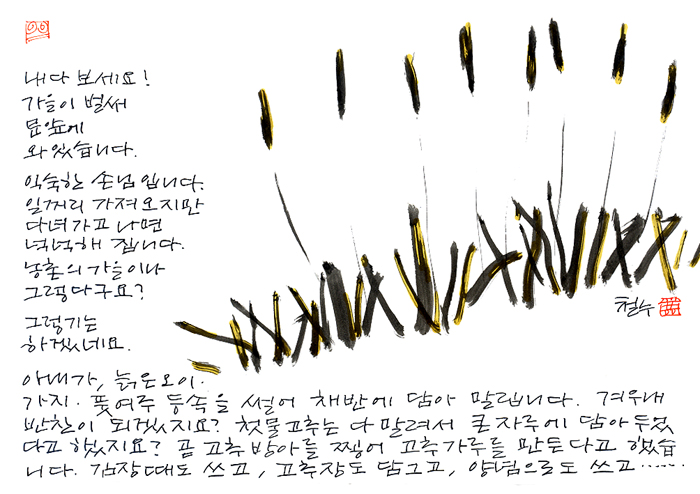 내다 보세요!
가을이 벌써
문앞에
와 있습니다.
익숙한 손님입니다.
일꺼리 가져 오지만
다녀가고 나면
넉넉해 집니다.
농촌의 가을이나
그렇다구요?
그렇기는
하겠네요.
철수
아내가, 늙은오이·
가지·풋여주 등속을 썰어 채반에 담아 말립니다. 겨우내
반찬이 되겠지요? 첫물고추는 다 말려서 큰자루에 담아두었
다고 했지요? 곧 고추방아를 찧어 고추가루를 만든다고 했습
니다. 김장때도 쓰고, 고추장도 담그고, 양념으로도 쓰고……